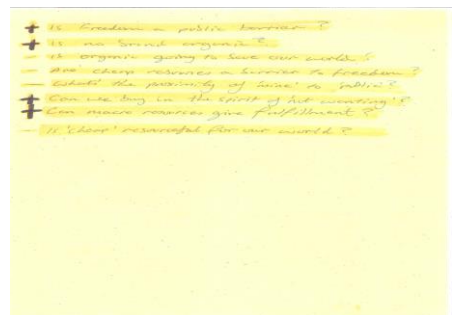 + Is Freedom a public barrier?
+ Is no brand organic?
- Is organic going to save our world?
- Are cheap resources a barrier to freedom?
- What's the proximity of 'mine' to 'public'?
+ Can we buy in the spirit of not wanting?
+ Can macro resources give fulfillment?
- Is 'cheap' resourceful for our world?